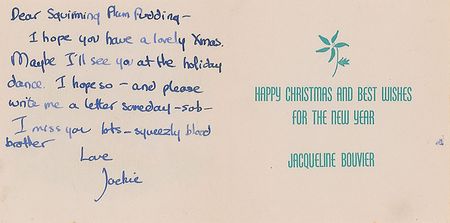 Dear Squirming Plum Pudding –
I hope you have a lovely Xmas.
Maybe I'll see you at the holiday
dance. I hope so – and please
write me a letter someday – sob –
I miss you lots – squeezly blood
brother
Love
Jackie
HAPPY CHRISTMAS AND BEST WISHES
FOR THE NEW YEAR
JACQUELINE BOUVIER